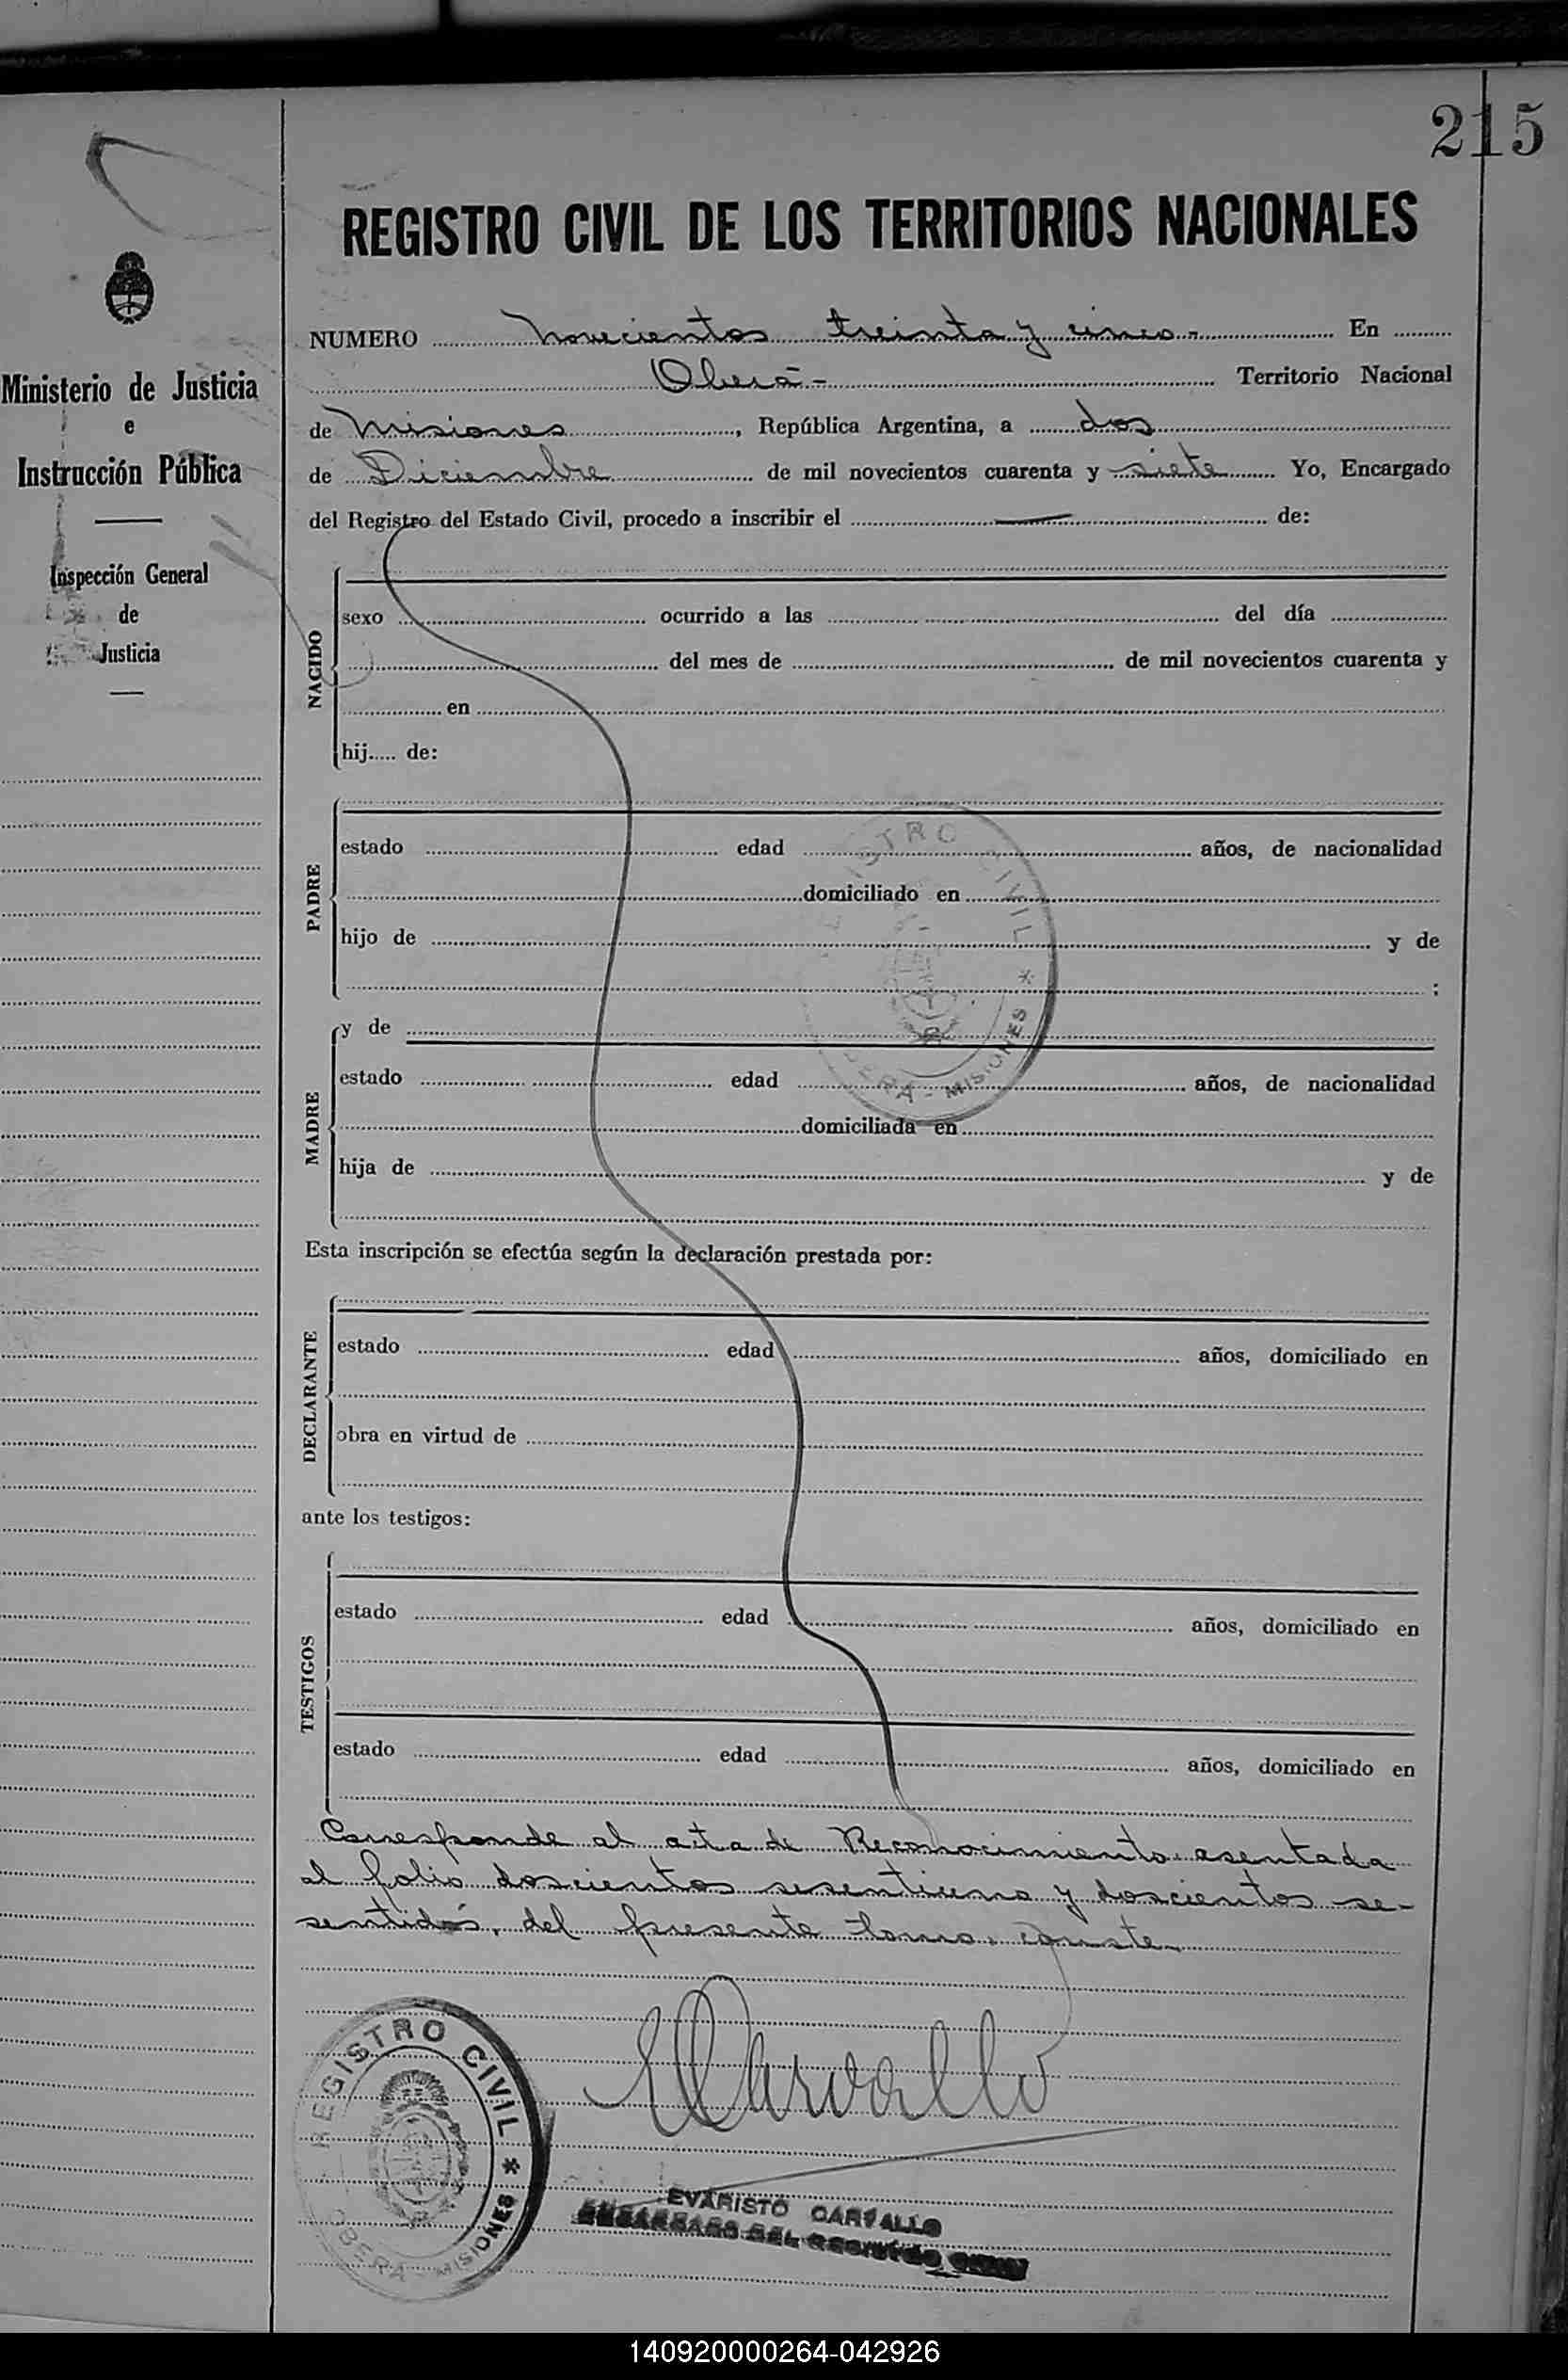 215
REGISTRO CIVIL DE LOS TERRITORIOS NACIONALES
Ministerio de Justicia
e
Instrucción Pública
Inspección General
de
Justicia
NUMERO novecientos treinta y cinco.- En
Oberá - Territorio Nacional
de Misiones, República Argentina, a dos
de Diciembre de mil novecientos cuarenta y siete Yo, Encargado
del Registro del Estado Civil, procedo a inscribir el de:
NACIDO
sexo ocurrido a las del día
del mes de de mil novecientos cuarenta y
en
hij..... de:
PADRE
estado edad años, de nacionalidad
domiciliado en
hijo de y de
;
MADRE
y de
estado edad años, de nacionalidad
domiciliada en
hija de y de
REGISTRO CIVIL * OBERA - MISIONES
Esta inscripción se efectúa según la declaración prestada por:
DECLARANTE
estado edad años, domiciliado en
obra en virtud de
ante los testigos:
TESTIGOS
estado edad años, domiciliado en
estado edad años, domiciliado en
Corresponde al acta de Reconocimiento asentada
al folio doscientos sesentiuno y doscientos se-
sentidós, del presente tomo. conste.
REGISTRO CIVIL * OBERA - MISIONES
ECarvallo
EVARISTO CARVALLO
ENCARGADO DEL REGISTRO CIVIL
140920000264-042926